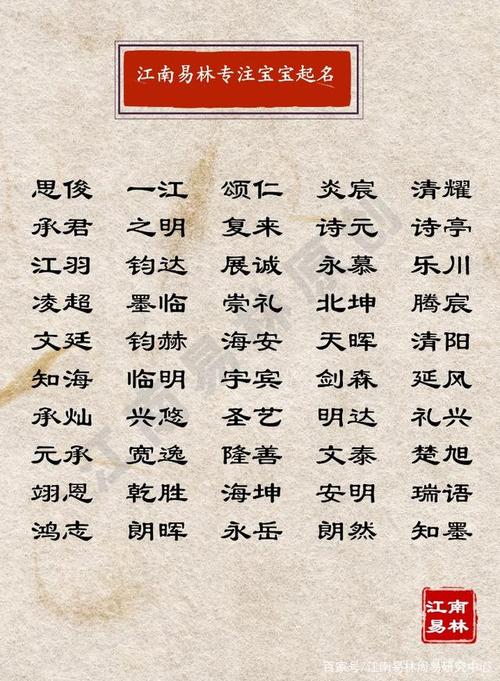 江南易林专注宝宝起名
思俊 一江 颂仁 炎宸 清耀
承君 之明 复来 诗元 诗亭
江羽 钧达 展诚 永慕 乐川
凌超 墨临 崇礼 北坤 腾宸
文廷 钧赫 海安 天晖 清阳
知海 临明 宇宾 剑森 延风
承灿 兴悠 圣艺 明达 礼兴
元承 宽逸 隆善 文泰 楚旭
翊恩 乾胜 海坤 安明 瑞语
鸿志 朗晖 永岳 朗然 知墨
江南易林原创
江南
易林
百家号/江南易林周易研究中心